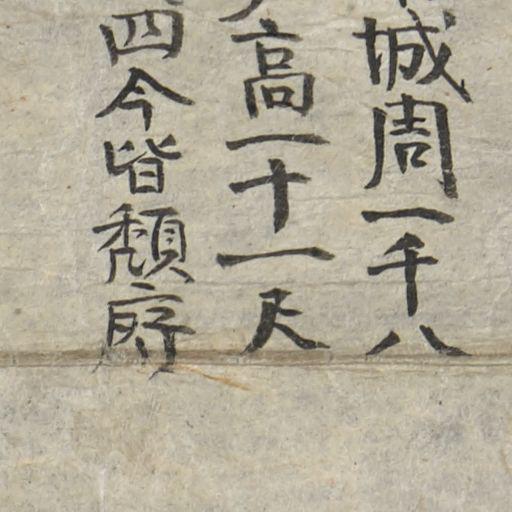 城周一千八
高一十一尺
四今皆頹府